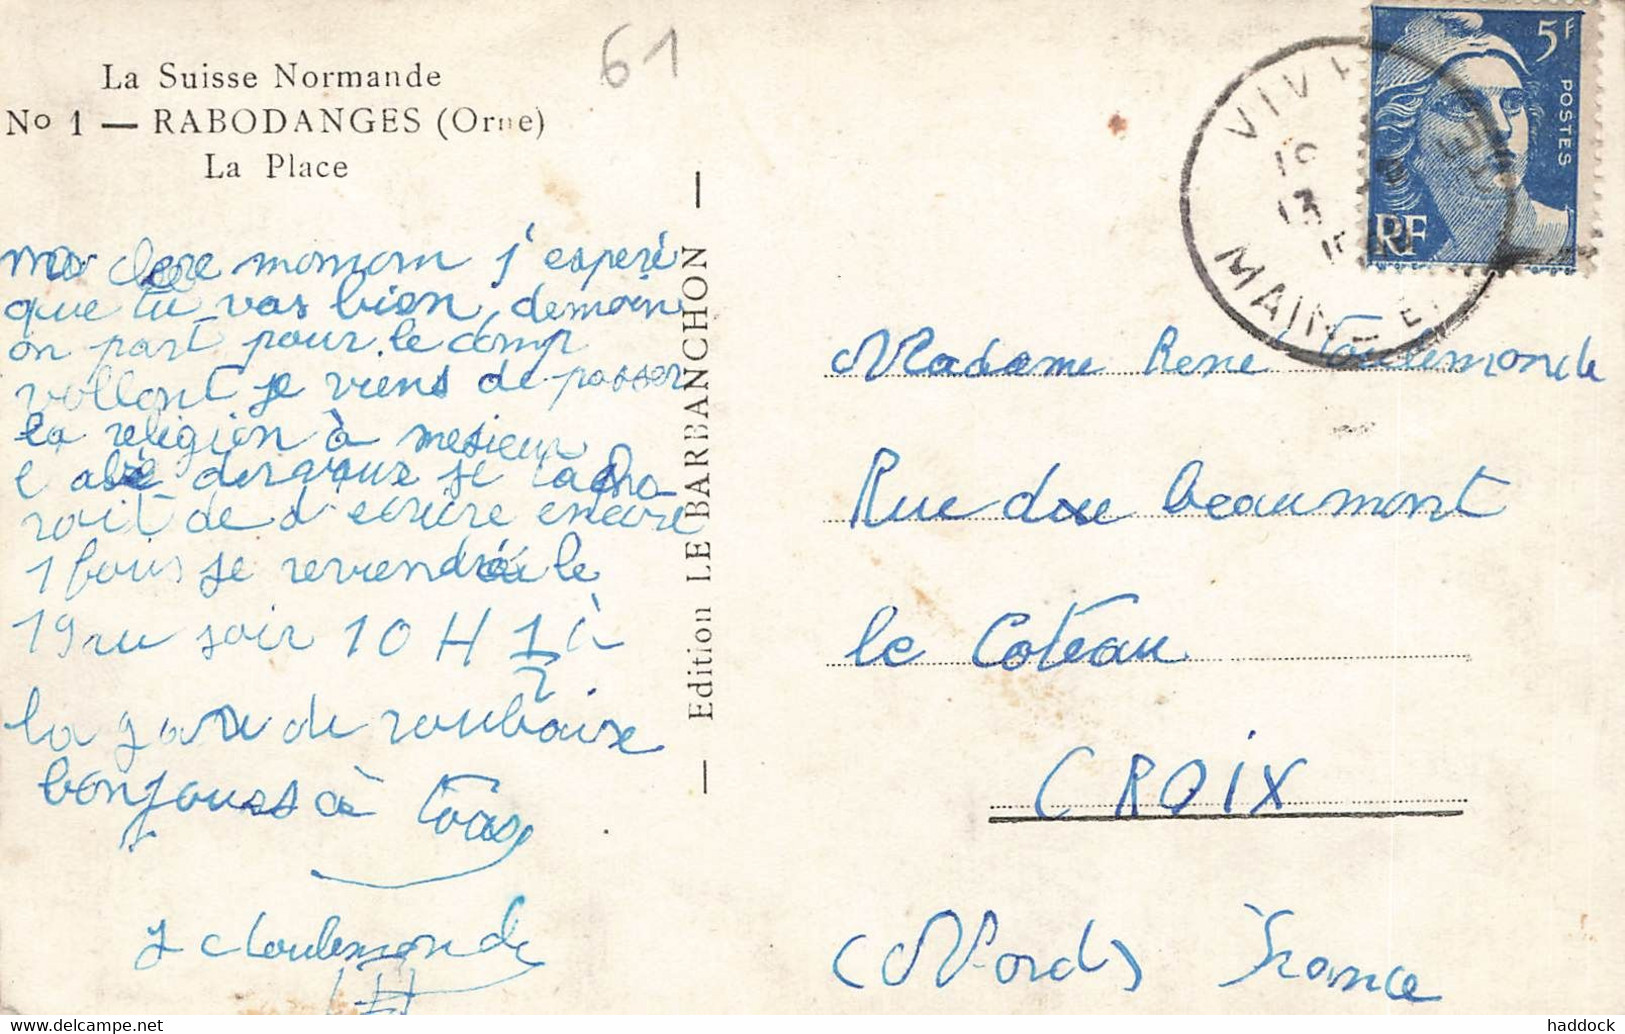 La Suisse Normande
No 1 — RABODANGES (Orne)
La Place
61
ma chere momom j'espere
que tu vas bien demoin
on part pour le comp
vollont je viens de passer
la religion à mesieur
l abé je
roit de d'ecrire encore
1 fois je reviendré le
19 au soir 10 H 1/2 à
la gare de roubaix
bonjours à tous
J Ctoulemonde
— Edition LE BARBANCHON —
VIV
13
MAINE ET
5F
POSTES
RF
Madame Rene Toulemonde
Rue du beaumont
le Coteau
CROIX
(Nord) France
haddock